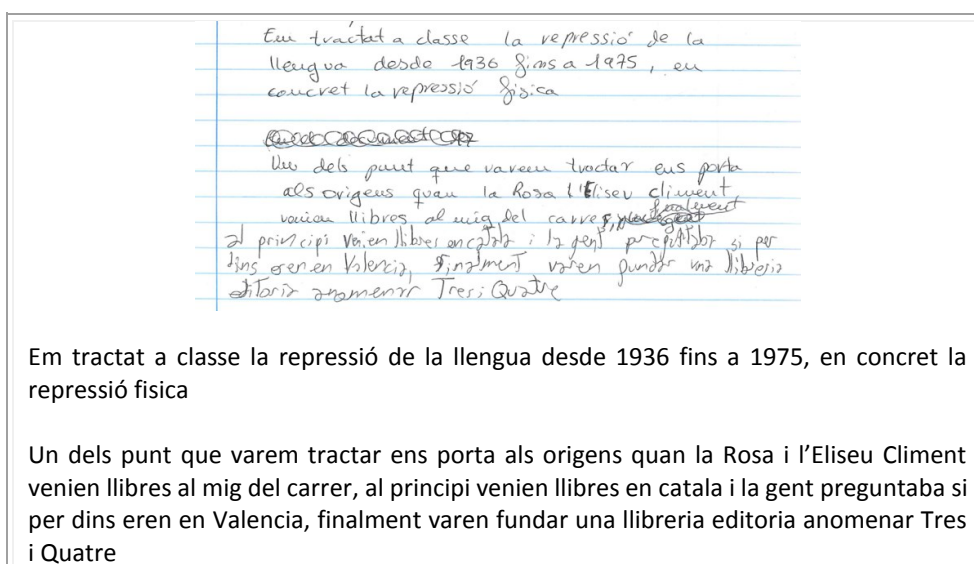 Em tractat a classe la repressió de la
llengua desde 1936 fins a 1975, en
concret la repressió fisica
Un dels punt que varem tractar ens porta
als origens quan la Rosa i l'Eliseu climent
venien llibres al mig del carrer,
finalment
al principi venien llibres en català i la gent preguntaba si per
dins eren en Valencia, finalment varen fundar una llibreria
editoria anomenar Tres i Quatre
Em tractat a classe la repressió de la llengua desde 1936 fins a 1975, en concret la
repressió fisica
Un dels punt que varem tractar ens porta als origens quan la Rosa i l’Eliseu Climent
venien llibres al mig del carrer, al principi venien llibres en catala i la gent preguntaba si
per dins eren en Valencia, finalment varen fundar una llibreria editoria anomenar Tres
i Quatre